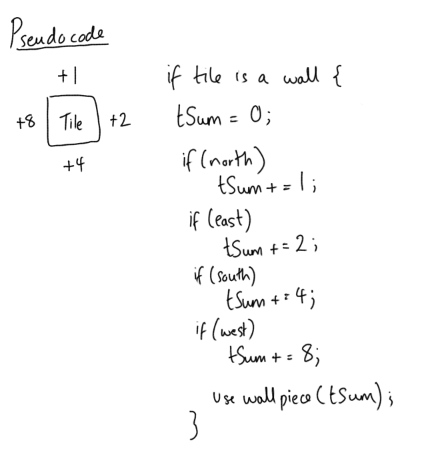 Pseudocode
+1
+8 Tile +2
+4
if tile is a wall {
tSum = 0;
if (north)
tSum += 1;
if (east)
tSum += 2;
if (south)
tSum += 4;
if (west)
tSum += 8;
use wall piece (tSum);
}